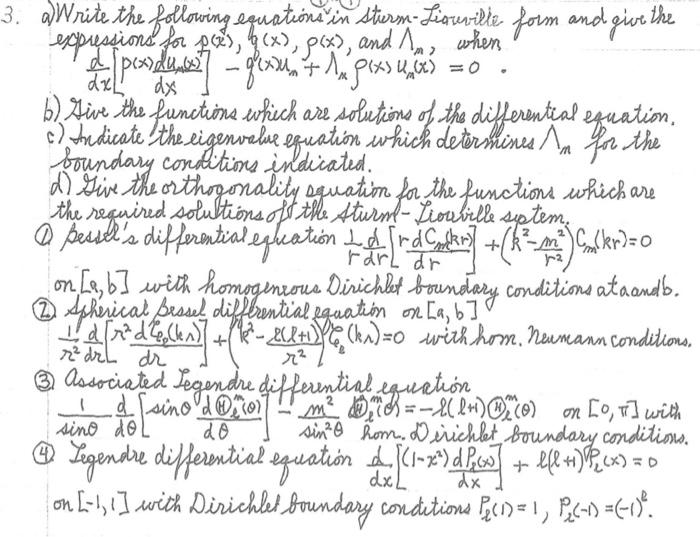 3. a) Write the following equations in Sturm-Liouville form and give the
expressions for p(x), q(x), ρ(x), and Λ_m, when
d/dx [p(x) du_m(x)/dx] - q(x)u_m + Λ_m ρ(x) u_m(x) = 0 .
b) Give the functions which are solutions of the differential equation.
c) Indicate the eigenvalue equation which determines Λ_m for the
boundary conditions indicated.
d) Give the orthogonality equation for the functions which are
the required solutions of the Sturm-Liouville system.
① Bessel's differential equation 1/r d/dr [r dC_m(kr)/dr] + (k² - m²/r²) C_m(kr) = 0
on [a,b] with homogeneous Dirichlet boundary conditions at a and b.
② Spherical Bessel differential equation on [a,b]
1/r² d/dr [r² dζ_ℓ(kr)/dr] + (k² - ℓ(ℓ+1)/r²) ζ_ℓ(kr) = 0 with hom. Neumann conditions.
③ Associated Legendre differential equation
1/sinθ d/dθ [sinθ dΘ_ℓ^m(θ)/dθ] - m²/sin²θ Θ_ℓ^m(θ) = -ℓ(ℓ+1) Θ_ℓ^m(θ) on [0,π] with
hom. Dirichlet boundary conditions.
④ Legendre differential equation d/dx [(1-x²) dP_ℓ(x)/dx] + ℓ(ℓ+1) P_ℓ(x) = 0
on [-1,1] with Dirichlet boundary conditions P_ℓ(1) = 1, P_ℓ(-1) = (-1)^ℓ.